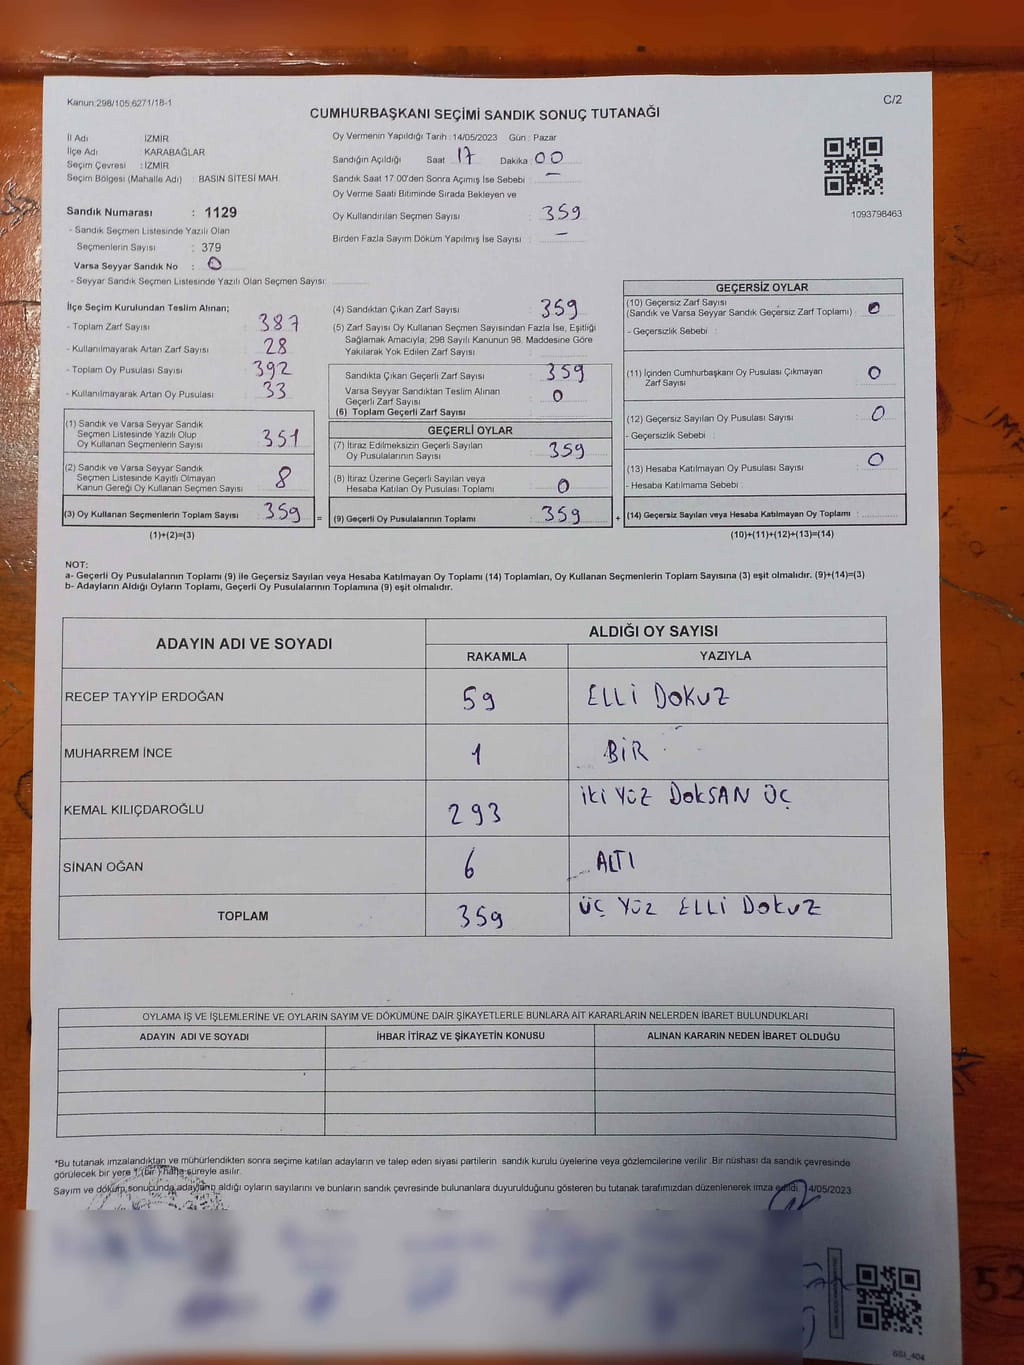 Kanun:298/105,6271/18-1
C/2
CUMHURBAŞKANI SEÇİMİ SANDIK SONUÇ TUTANAĞI
İl Adı İZMİR
İlçe Adı KARABAĞLAR
Seçim Çevresi : İZMİR
Seçim Bölgesi (Mahalle Adı) : BASIN SİTESİ MAH.
Sandık Numarası : 1129
- Sandık Seçmen Listesinde Yazılı Olan
Seçmenlerin Sayısı : 379
Varsa Seyyar Sandık No : 0
- Seyyar Sandık Seçmen Listesinde Yazılı Olan Seçmen Sayısı:
Oy Vermenin Yapıldığı Tarih : 14/05/2023 Gün : Pazar
Sandığın Açıldığı Saat 17 Dakika : 00
Sandık Saat 17.00'den Sonra Açımış İse Sebebi : -
Oy Verme Saati Bitiminde Sırada Bekleyen ve
Oy Kullandırılan Seçmen Sayısı : 359
Birden Fazla Sayım Döküm Yapılmış İse Sayısı : -
1093798463
İlçe Seçim Kurulundan Teslim Alınan;
- Toplam Zarf Sayısı : 387
- Kullanılmayarak Artan Zarf Sayısı : 28
- Toplam Oy Pusulası Sayısı : 392
- Kullanılmayarak Artan Oy Pusulası : 33
(1) Sandık ve Varsa Seyyar Sandık
Seçmen Listesinde Yazılı Olup
Oy Kullanan Seçmenlerin Sayısı : 351
(2) Sandık ve Varsa Seyyar Sandık
Seçmen Listesinde Kayıtlı Olmayan
Kanun Gereği Oy Kullanan Seçmen Sayısı : 8
(3) Oy Kullanan Seçmenlerin Toplam Sayısı : 359 =
(1)+(2)=(3)
(4) Sandıktan Çıkan Zarf Sayısı : 359
(5) Zarf Sayısı Oy Kullanan Seçmen Sayısından Fazla İse, Eşitliği
Sağlamak Amacıyla, 298 Sayılı Kanunun 98. Maddesine Göre
Yakılarak Yok Edilen Zarf Sayısı :
Sandıkta Çıkan Geçerli Zarf Sayısı : 359
Varsa Seyyar Sandıktan Teslim Alınan
Geçerli Zarf Sayısı : 0
(6) Toplam Geçerli Zarf Sayısı :
GEÇERLİ OYLAR
(7) İtiraz Edilmeksizin Geçerli Sayılan
Oy Pusulalarının Sayısı : 359
(8) İtiraz Üzerine Geçerli Sayılan veya
Hesaba Katılan Oy Pusulası Toplamı : 0
(9) Geçerli Oy Pusulalarının Toplamı : 359 +
GEÇERSİZ OYLAR
(10) Geçersiz Zarf Sayısı
(Sandık ve Varsa Seyyar Sandık Geçersiz Zarf Toplamı) : 0
- Geçersizlik Sebebi :
(11) İçinden Cumhurbaşkanı Oy Pusulası Çıkmayan
Zarf Sayısı : 0
(12) Geçersiz Sayılan Oy Pusulası Sayısı : 0
- Geçersizlik Sebebi :
(13) Hesaba Katılmayan Oy Pusulası Sayısı : 0
- Hesaba Katılmama Sebebi :
(14) Geçersiz Sayılan veya Hesaba Katılmayan Oy Toplamı :
(10)+(11)+(12)+(13)=(14)
NOT:
a- Geçerli Oy Pusulalarının Toplamı (9) ile Geçersiz Sayılan veya Hesaba Katılmayan Oy Toplamı (14) Toplamları, Oy Kullanan Seçmenlerin Toplam Sayısına (3) eşit olmalıdır. (9)+(14)=(3)
b- Adayların Aldığı Oyların Toplamı, Geçerli Oy Pusulalarının Toplamına (9) eşit olmalıdır.
ADAYIN ADI VE SOYADI ALDIĞI OY SAYISI
RAKAMLA YAZIYLA
RECEP TAYYİP ERDOĞAN 59 ELLİ DOKUZ
MUHARREM İNCE 1 BİR
KEMAL KILIÇDAROĞLU 293 İKİ YÜZ DOKSAN ÜÇ
SİNAN OĞAN 6 ALTI
TOPLAM 359 ÜÇ YÜZ ELLİ DOKUZ
OYLAMA İŞ VE İŞLEMLERİNE VE OYLARIN SAYIM VE DÖKÜMÜNE DAİR ŞİKAYETLERLE BUNLARA AİT KARARLARIN NELERDEN İBARET BULUNDUKLARI
ADAYIN ADI VE SOYADI İHBAR İTİRAZ VE ŞİKAYETİN KONUSU ALINAN KARARIN NEDEN İBARET OLDUĞU
*Bu tutanak imzalandıktan ve mühürlendikten sonra seçime katılan adayların ve talep eden siyasi partilerin sandık kurulu üyelerine veya gözlemcilerine verilir. Bir nüshası da sandık çevresinde
görülecek bir yere 1 (bir) hafta süreyle asılır.
Sayım ve döküm sonucunda adayların aldığı oyların sayılarını ve bunların sandık çevresinde bulunanlara duyurulduğunu gösteren bu tutanak tarafımızdan düzenlenerek imza edildi. 4/05/2023
52